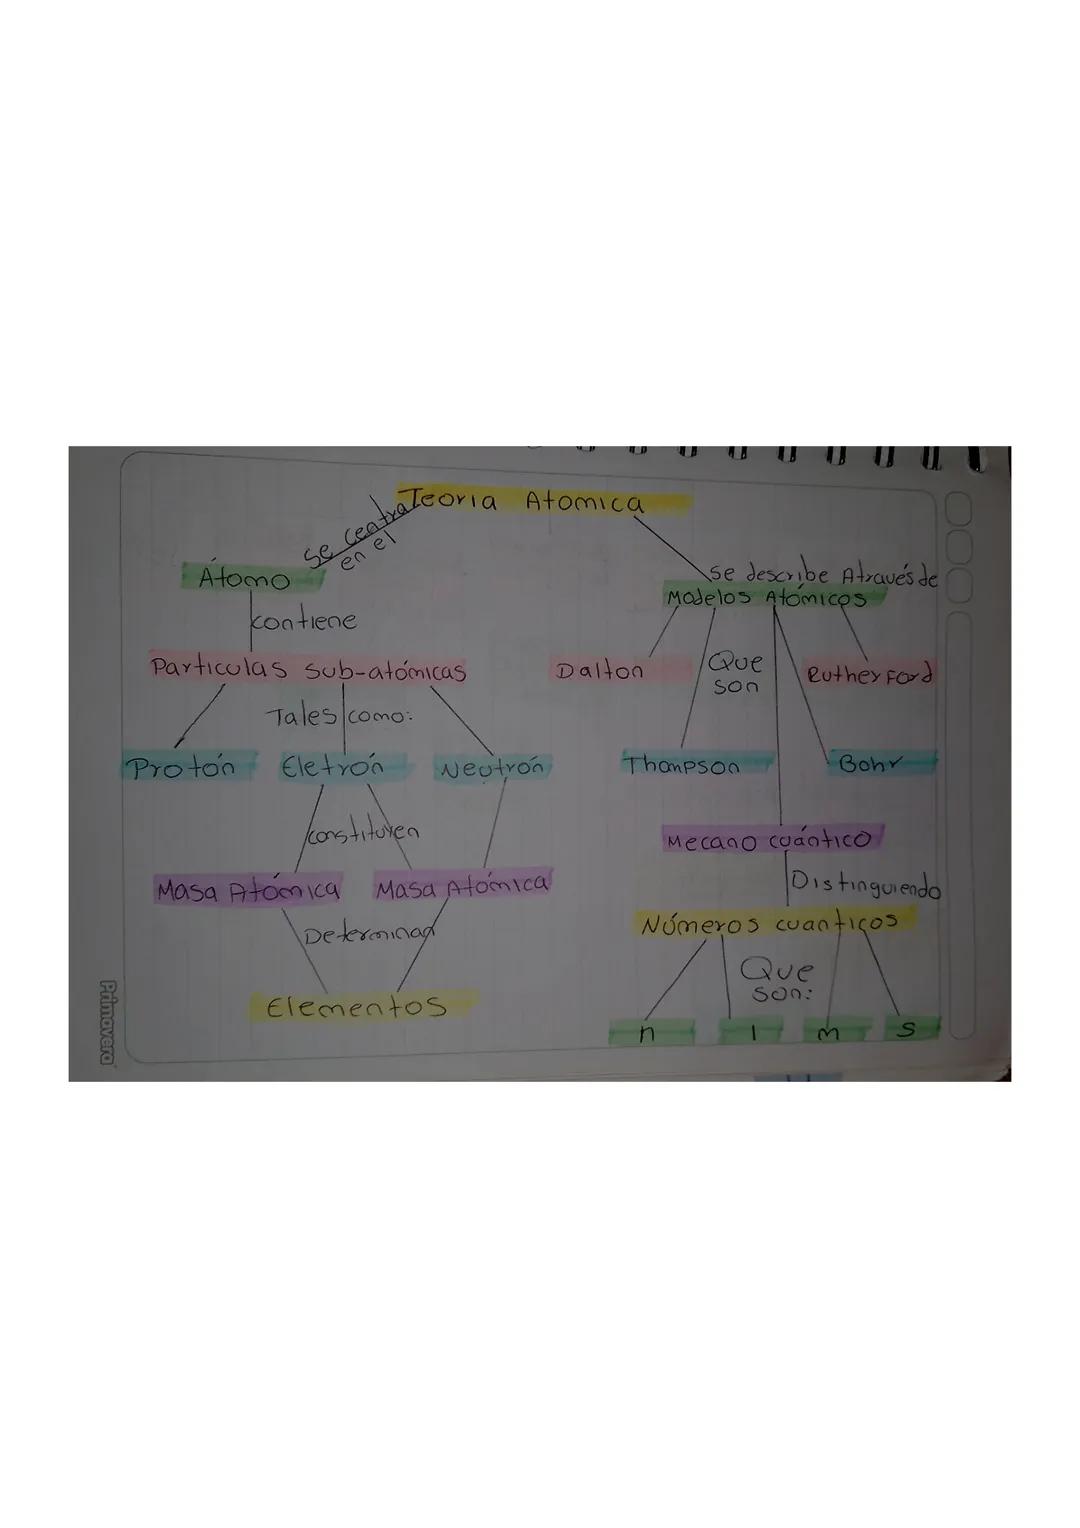 Teoria Atomica
Se centra
en el
Átomo
se describe Através de
Modelos Atómicos
contiene
Particulas sub-atómicas
Dalton
Que
son
Rutherford
Tales como:
Protón
Eletrón
Neutrón
Thompson
Bohr
constituyen
Mecano cuántico
Masa Atómica
Masa Atómica
Distinguiendo
Determinan
Números cuanticos
Elementos
Que
son:
n
l
m
s
Primavera